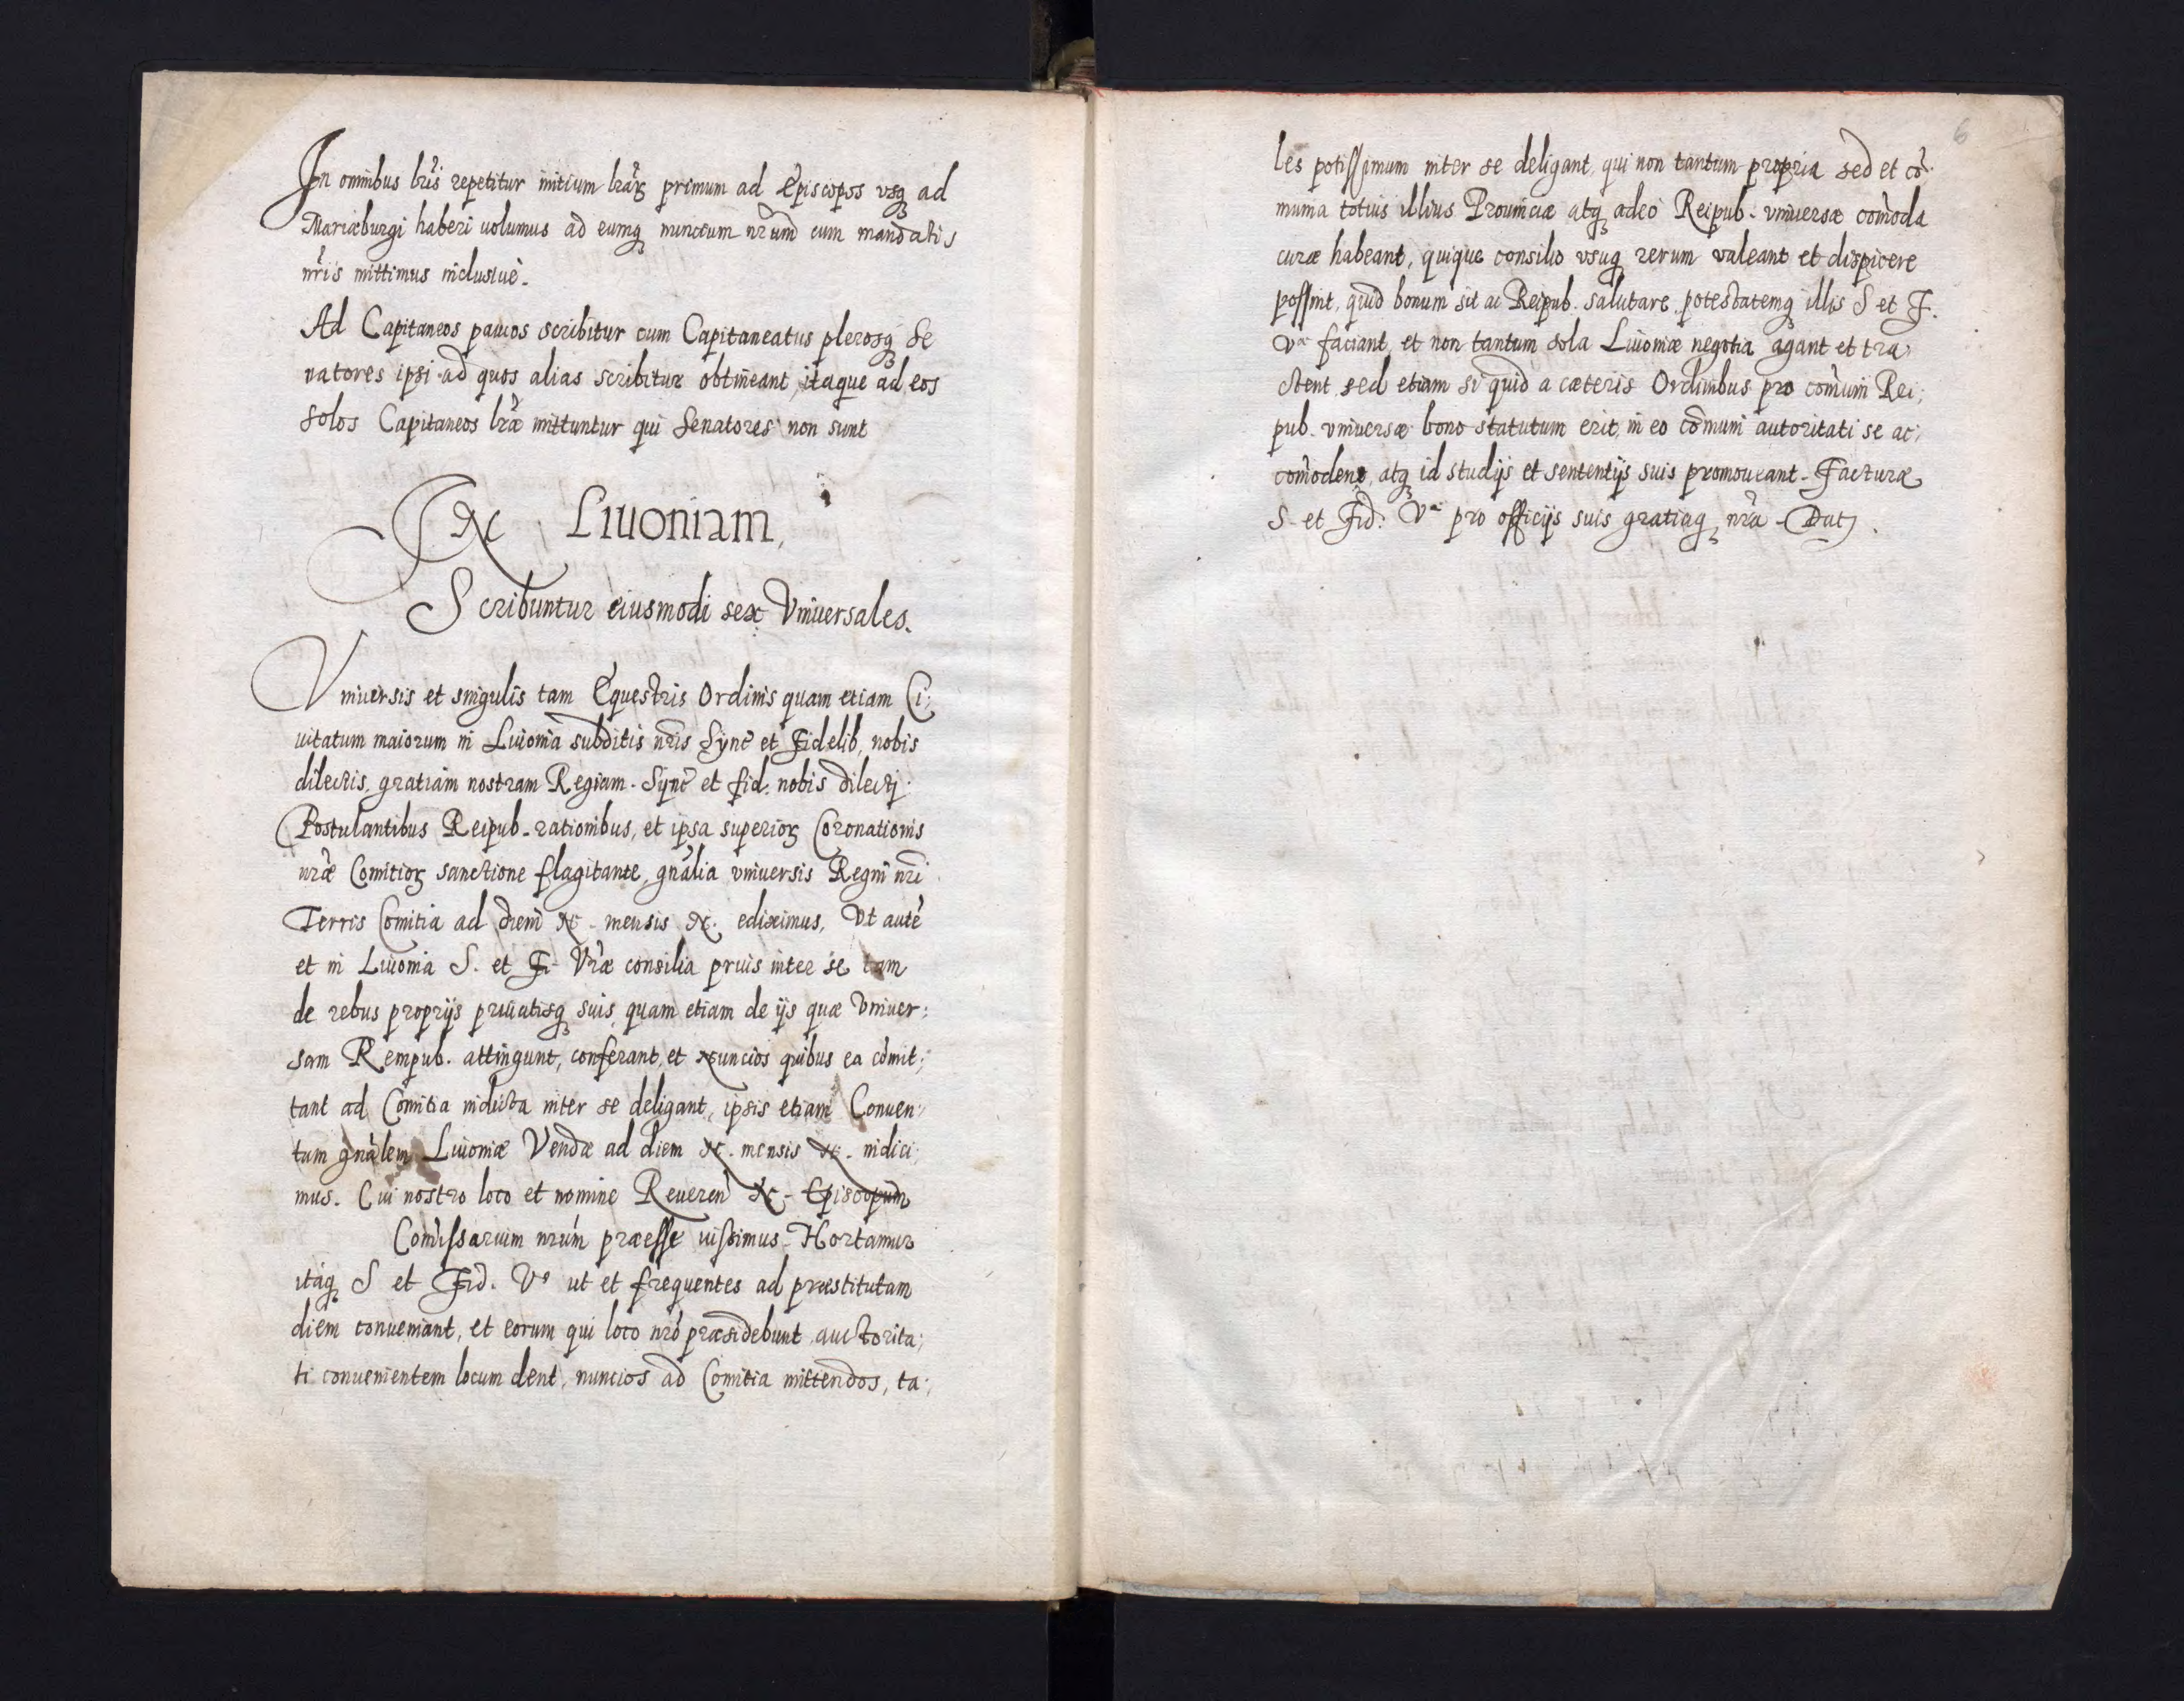 In omnibus lrĩs repetitur initium lrãrꝫ primum ad Episcopos vsqꝫ ad
Mariæburgi haberi uolumus ad eumqꝫ nuncium nrũm cum mandatis
nrĩs mittimus inclusiuè.
Ad Capitaneos paucos scribitur cum Capitaneatus plerosqꝫ Se
natores ipsi ad quos alias scribitur obtineant, itaque ad eos
solos Capitaneos lræ̃ mittuntur qui Senatores non sunt
In Liuoniam,
Scribuntur eiusmodi sex Vniuersales.
Vniuersis et singulis tam Equestris Ordinis quam etiam Ci;
uitatum maiorum in Liuonia subditis nrĩs Sync̃ et Fidelib, nobis
dilectis, gratiam nostram Regiam. Sync̃ et fid. nobis dilecti
Postulantibus Reipub. rationibus, et ipsa superiorꝫ Coronationis
nræ̃ Comitiorꝫ sanctione flagitante, gnãlia vniuersis Regni nrĩ
Terris Comitia ad diem N. mensis N. ediximus, Vt autẽ
et in Liuonia S. et Fi. Vræ̃ consilia prius inter se tam
de rebus proprijs priuatisqꝫ suis, quam etiam de ijs quæ Vniuer:
sam Rempub. attingunt, conferant, et Nuncios quibus ea com̃it;
tant ad Comitia indicta inter se deligant, ipsis etiam Conuen:
tum gnãlem Liuoniæ Vendæ ad diem N. mensis N. indici;
mus. Cui nostro loco et nomine Reueren̄ N. Episcopum
Com̃issarium nrũm præesse iussimus. Hortamur
itaqꝫ S et Fid. Vs ut et frequentes ad præstitutam
diem conueniant, et eorum qui loco nrõ præsidebunt auctorita;
ti conuenientem locum dent, nuncios ad Comitia mittendos, ta;
6
les potissimum inter se deligant, qui non tantum propria sed et cõ.
munia totius illius Prouinciæ atqꝫ adeo Reipub. vniuersæ com̃oda
curæ habeant, quique consilio vsuqꝫ rerum valeant et dispicere
possint, quid bonum sit ac Reipub. salutare, potestatemqꝫ illis S et F.
Væ faciant, et non tantum sola Liuoniæ negotia agant et tra;
ctent, sed etiam si quid a cæteris Ordinibus pro com̃uni Rei;
pub. vniuersæ bono statutum erit, in eo com̃uni autoritati se ac;
com̃odent, atqꝫ id studijs et sententijs suis promoueant. Facturæ
S. et Fid: Væ pro officijs suis gratiaqꝫ nrã. Datꝫ.